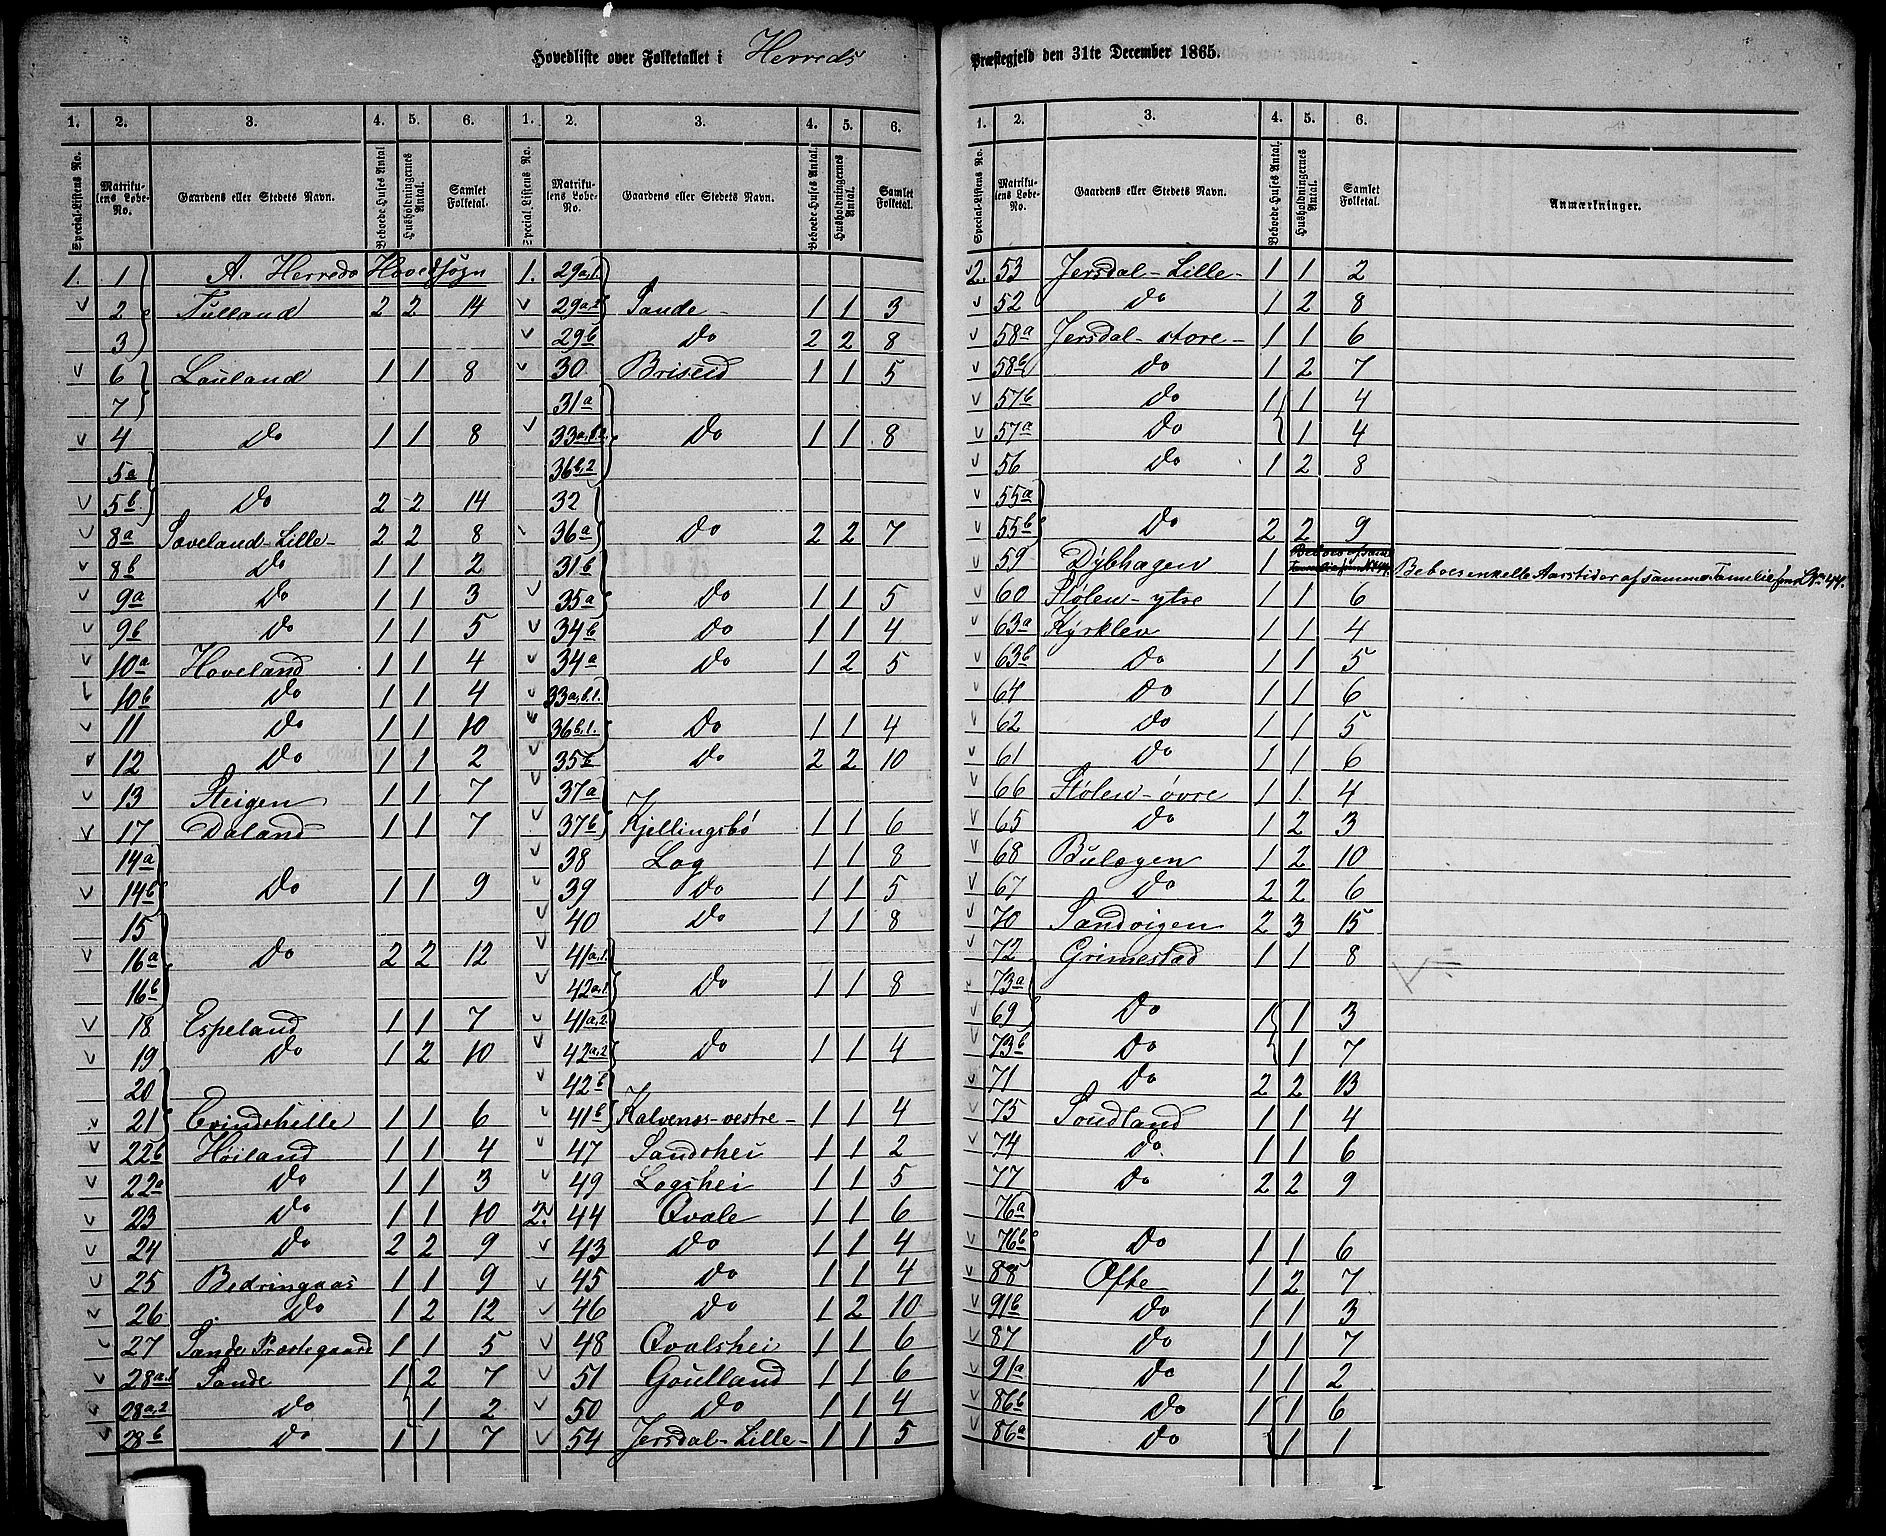 Hovedliste over Folketallet i Herreds Præstegjeld den 31te December 1865.
1. 2. 3. 4. 5. 6. 1. 2. 3. 4. 5. 6.
Special-Listens No. Matrikulens Løbe-No. Gaardens eller Stedets Navn. Beboede Huses Antal. Husholdningernes Antal. Samlet Folketal. Special-Listens No. Matrikulens Løbe-No. Gaardens eller Stedets Navn. Beboede Huses Antal. Husholdningernes Antal. Samlet Folketal.
1. 1 A. Herreds Hovedsogn
2 Fulland 2 2 14
3
6 Lauland 1 1 8
7
4 Do 1 1 8
5a
5b Do 2 2 14
8a Soveland-Lille- 2 2 8
8b Do 1 1 2
9a Do 1 1 3
9b Do 1 1 5
10a Hoveland 1 1 4
10b Do 1 1 4
11 Do 1 1 10
12 Do 1 1 2
13 Steigen 1 1 7
17 Daland 1 1 7
14a
14b Do 1 1 9
15
16a Do 2 2 12
16b
18 Espeland 1 1 7
19 Do 1 2 10
20
21 Evindshelle 1 1 6
22b Høiland 1 1 4
22a Do 1 1 3
23 Do 1 1 10
24 Do 2 2 9
25 Bedringaas 1 1 9
26 Do 1 2 12
27 Sande Præstegaard 1 1 5
28a,1 Sande 1 2 7
28a,2 Do 1 2
28b Do 1 1 7
1. 29a,1
29a,2 Sande - 1 1 3
29b Do 2 2 8
30 Briseid 1 1 5
31a
33a,b.2. Do 1 1 8
36b,2
32
36a Do 2 2 7
31b
35a Do 1 1 5
34b Do 1 1 4
34a Do 1 2 5
33a,b.1.
36b,1. Do 1 1 4
35b Do 2 2 10
37a
37b Kjellingsbö 1 1 6
38 Log 1 1 8
39 Do 1 1 5
40 Do 1 1 8
41a,1.
42a,1 Do 1 1 8
41a,2.
42a,2 Do 1 1 4
42b
41b Kalvenes-vestre- 1 1 4
47 Sandshei 1 1 2
49 Logshei 1 1 5
2. 44 Qvale 1 1 6
43 Do 1 1 4
45 Do 1 1 4
46 Do 1 2 10
48 Qvalshei 1 1 6
51 Goulland 1 1 6
50 Do 1 1 4
54 Jersdal-Lille- 1 1 5
1. 2. 3. 4. 5. 6.
Special-Listens No. Matrikulens Løbe-No. Gaardens eller Stedets Navn. Beboede Huses Antal. Husholdningernes Antal. Samlet Folketal. Anmærkninger.
2. 53 Jersdal-Lille- 1 1 2
52 Do 1 2 8
58a Jersdal-store- 1 1 6
58b Do 1 2 7
57b Do 1 1 4
57a Do 1 4
56 Do 1 2 8
55a
55b Do 2 2 9
59 Dybhagen 1 Beboes enkelte Aarstider af samme Familie fra L.No 44.
60 Stølen-ytre 1 1 6
63a Kyrklev 1 1 4
63b Do 1 1 5
64 Do 1 1 6
62 Do 1 1 5
61 Do 1 1 6
66 Stølen-øvre 1 1 4
65 Do 1 2 3
68 Bulagen 1 2 10
67 Do 2 2 6
70 Sandvigen 2 3 15
72 Grimestad 1 1 8
73a
69 Do 1 1 3
73b Do 1 7
71 Do 2 2 13
75 Soudland 1 1 4
74 Do 1 1 6
77 Do 2 2 9
76a
76b Do 1 1 6
88 Ofte 1 2 7
91b Do 1 1 3
87 Do 1 1 7
91a Do 1 1 2
86b Do 1 1 6
86a Do 1 1